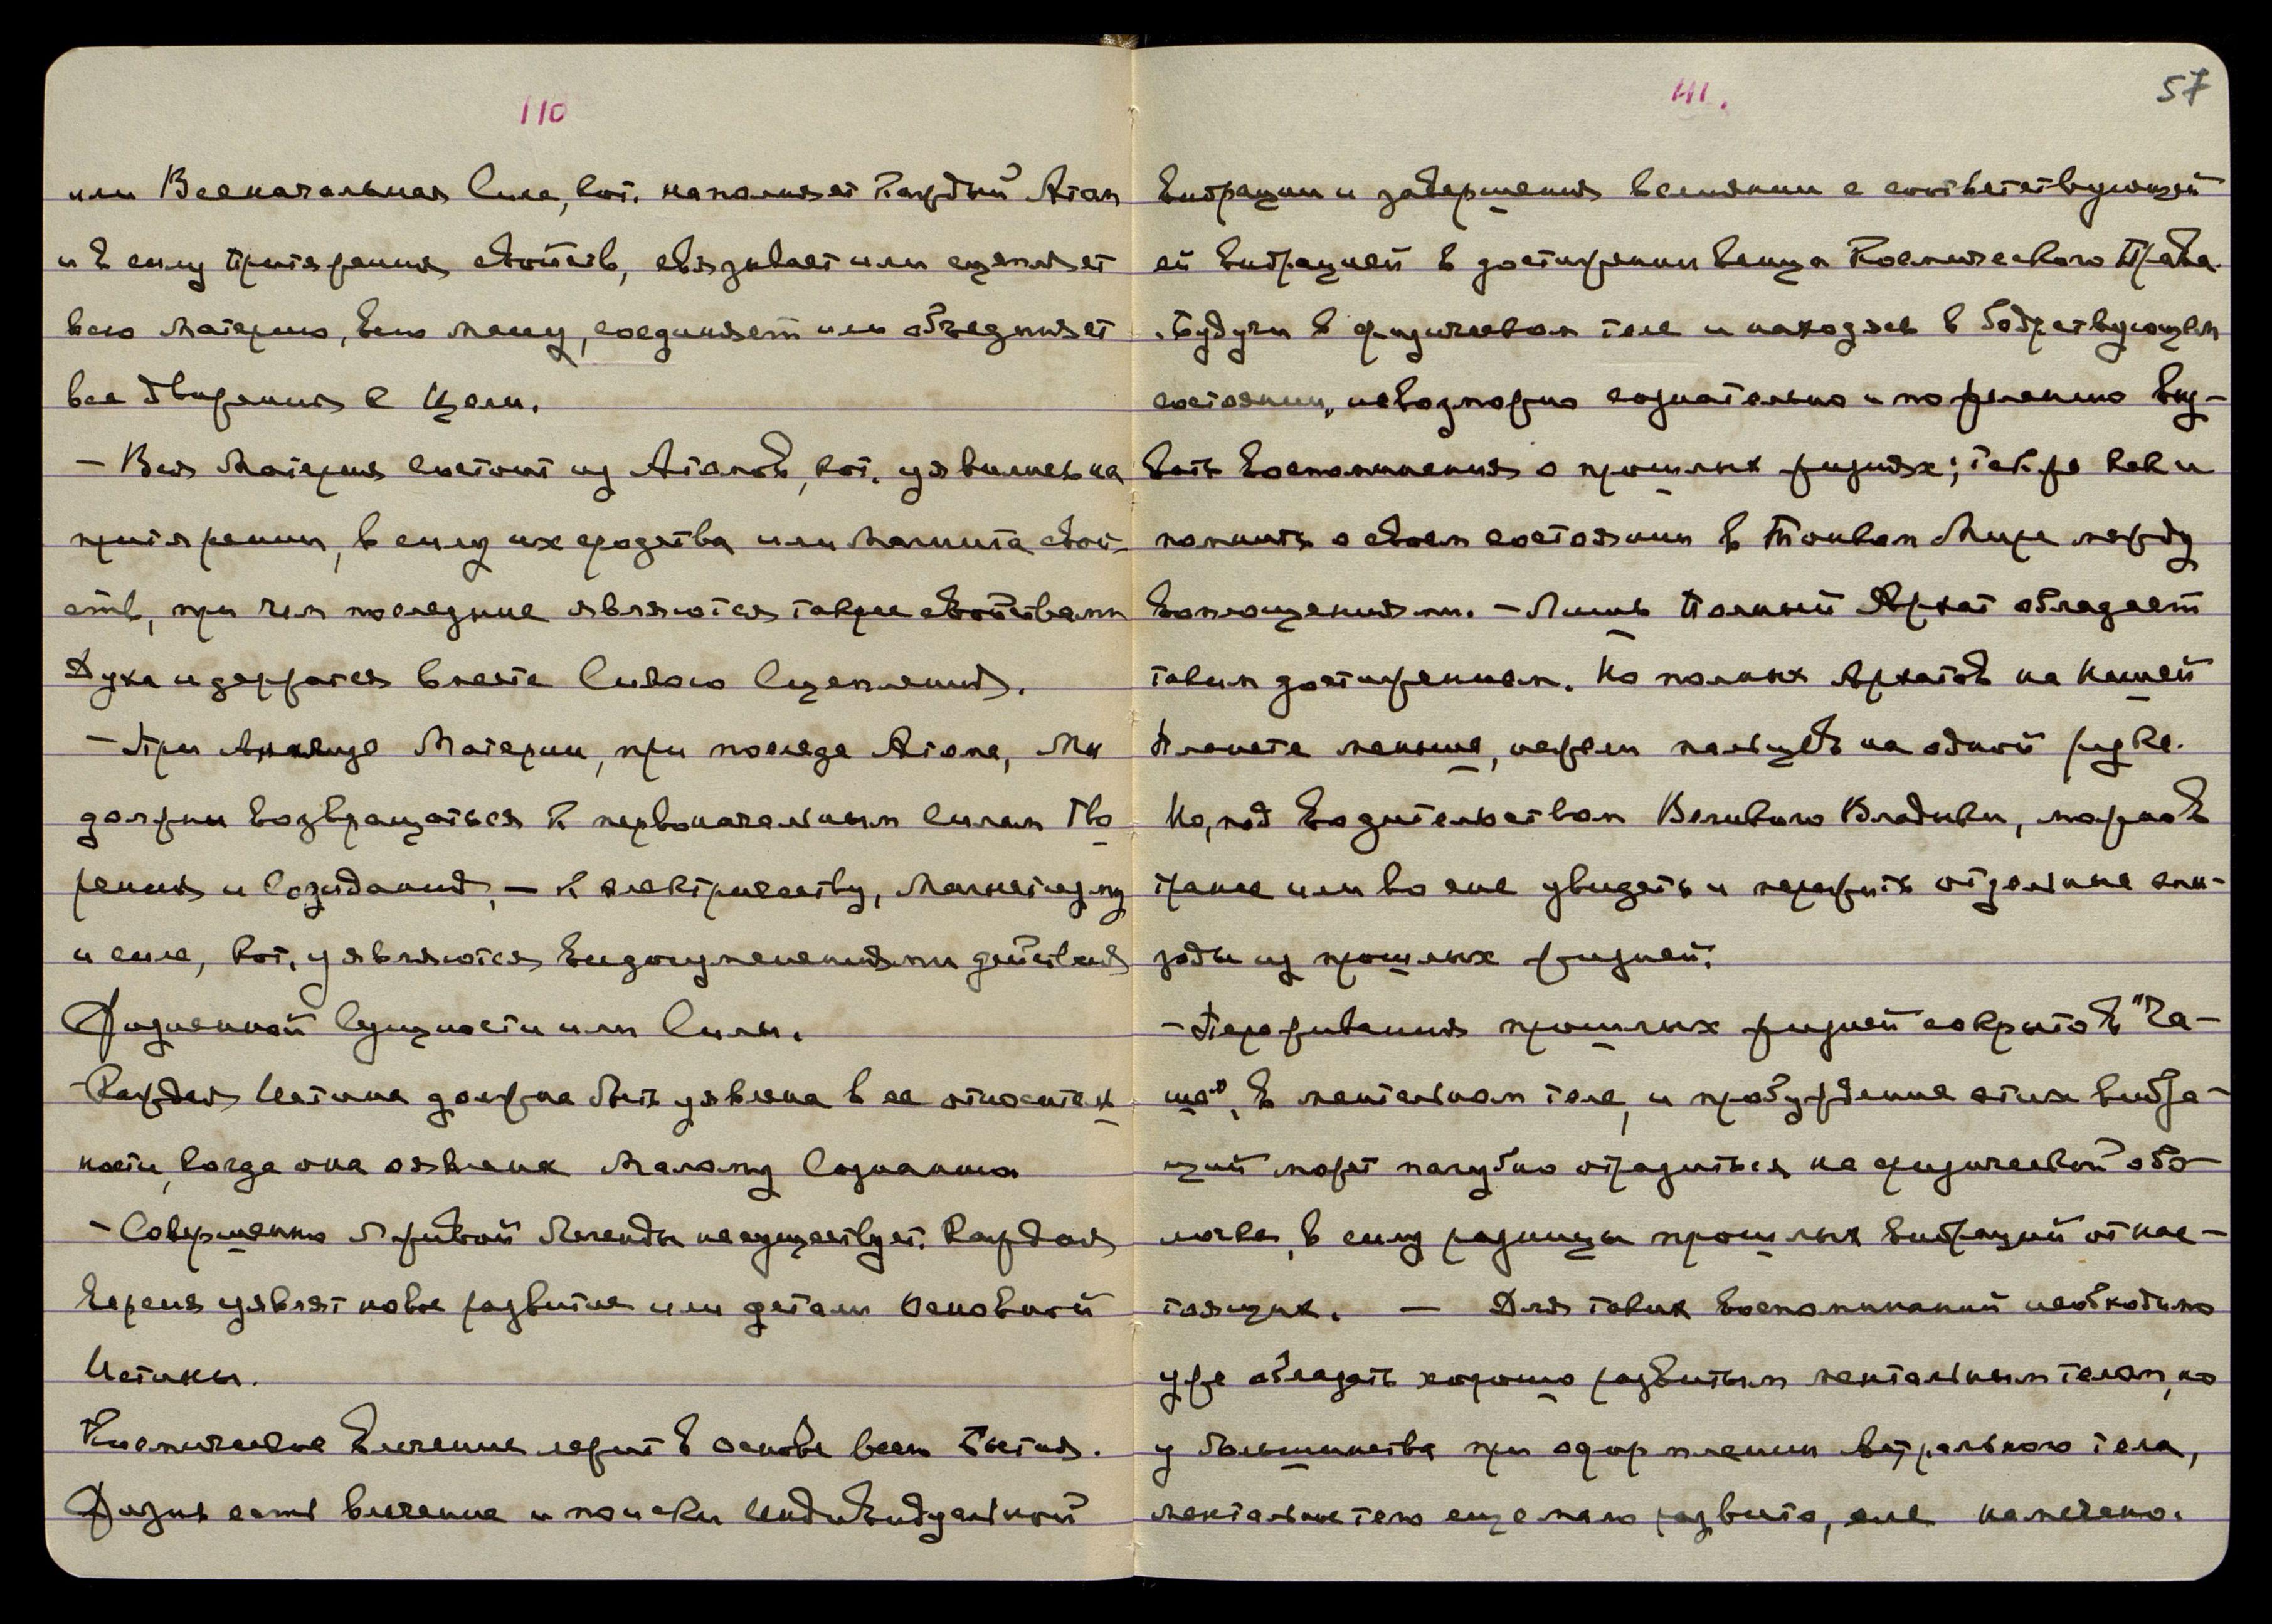 110
или Всеначальная Сила, кот. наполняет Каждый Атом
и в силу притяжения свойств, связывает или сцепляет
всю Материю, всю массу, соединяет или объединяет
все движения к цели.
— Вся Материя состоит из Атомов, кот. уявились на
притяжении, в силу их сродства или Магнита свой-
ств, при чем последние являются также свойствами
Духа и держатся вместе Силою Сцепления.
— При анализе Материи, при поседе Атома, Мы
должны возвращаться к первоначальным силам Тво
рения и Созидания, — к электричеству, Магнетизму
и силе, кот. уявляются видоизменениями действия
Жизненной Сущности или Силы.
Каждая Истина должна быть уявлена в ее относитель
ности, когда она оявлена Малому Сознанию
— Совершенно лживой Легенды не существует. Каждая
версия уявлят новое развитие или детали Основной
Истины.
Космическое Влечение лежит в основе всего Бытия.
Жизнь есть влечение и поиски Индивидуальной
111.
57
вибрации и завершения в слиянии с соответствующей
ей вибрацией в достижении венца Космического Права.
Будучи в физическом теле и находясь в бодрствующем
состоянии, невозможно сознательно и по желанию выз-
вать воспоминания о прошлых жизнях; так же как и
помнить о своем состоянии в Тонком Мире между
воплощениями. — Лишь Полный Архат обладает
таким достижением. Но полных Архатов на Нашей
Планете меньше, нежели пальцев на одной руке.
Но, под водительством Великого Владыки, можно в
трансе или во сне увидеть и пережить отдельные эпи-
зоды из прошлых жизней.
— Переживания прошлых жизней сокрыто в "Ча-
ше", в ментальном теле, и пробуждение этих вибра-
ций может пагубно отразиться на физической обо-
лочке, в силу разницы прошлых вибраций от нас-
тоящих. — Для таких воспоминаний необходимо
уже обладать хорошо развитым ментальным телом, но
у большинства при оформлении астрального тела,
ментальное тело еще мало развито, еле намечено.